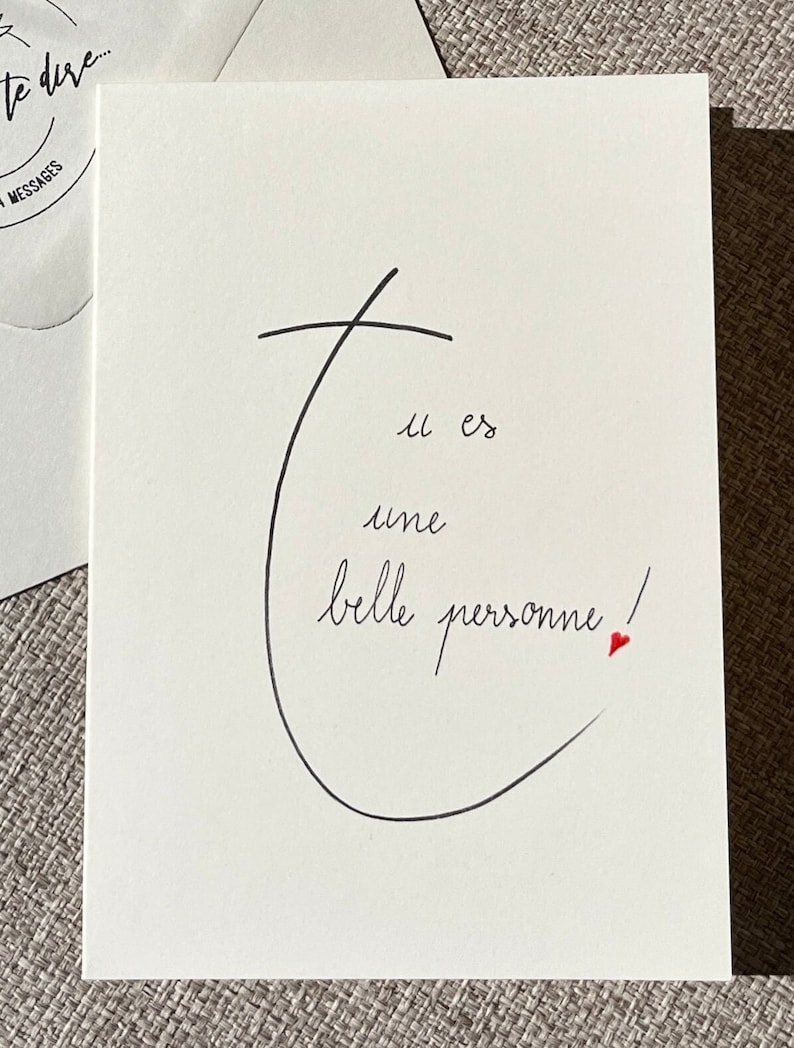 te dire...
MESSAGES
tu es
une
belle personne !